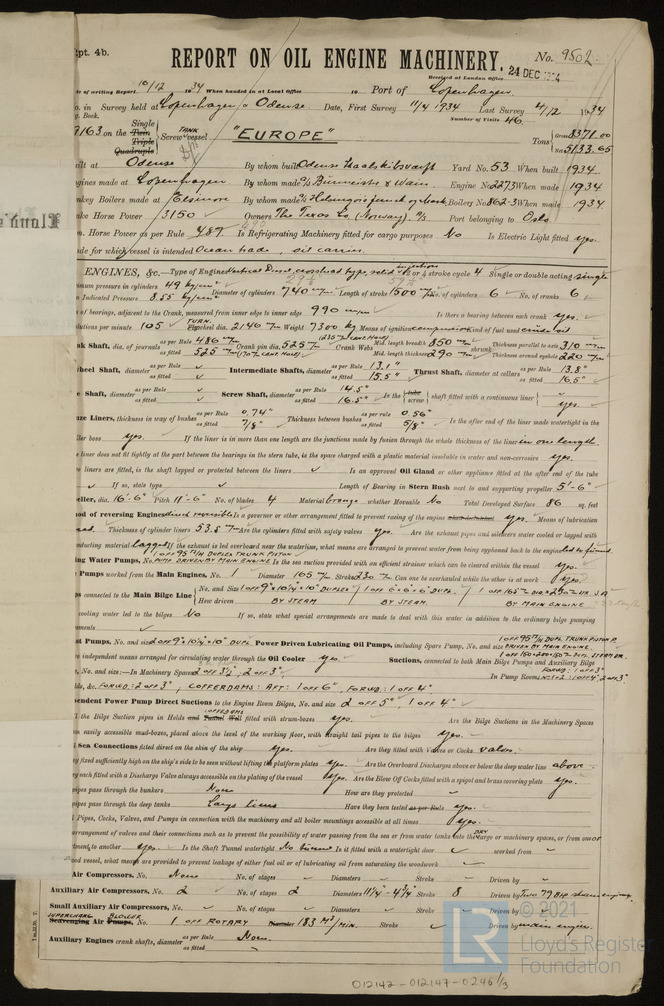 Rpt. 4b.
REPORT ON OIL ENGINE MACHINERY.
No. 9502
Received at London Office 24 DEC 1934
te of writing Report 10/12 1934 When handed in at Local Office 19 Port of Copenhagen
o. in Survey held at Copenhagen & Odense Date, First Survey 11/4 1934 Last Survey 4/12 1934
g. Book. Number of Visits 46
9163 on the Single Twin Triple Quadruple Screw TANK vessel "EUROPE" Tons Gross 8371.00 Net 5133.65
uilt at Odense By whom built Odense Staalskibsværft Yard No. 53 When built 1934
ngines made at Copenhagen By whom made A/S Burmeister & Wain Engine No. 2273 When made 1934
nkey Boilers made at Elsinore By whom made When made 1934
ake Horse Power 3150 Owners The Texas Co (Norway) A/S Port belonging to Oslo
. Horse Power as per Rule 489 Is Refrigerating Machinery fitted for cargo purposes No Is Electric Light fitted yes.
ade for which vessel is intended Ocean trade, oil carrier.
ENGINES, &c.—Type of Engines Vertical Diesel, crosshead type, solid injection 2 or 4 stroke cycle 4 Single or double acting Single
imum pressure in cylinders 49 kg/cm² Diameter of cylinders 740 m/m Length of stroke 1500 m/m No. of cylinders 6 No. of cranks 6
n Indicated Pressure 8.55 kg/cm²
of bearings, adjacent to the Crank, measured from inner edge to inner edge 990 m/m Is there a bearing between each crank yes.
olutions per minute 105 TURN. Flywheel dia. 2146 m/m Weight 7300 kg Means of ignition compression Kind of fuel used crude oil
nk Shaft, dia. of journals as per Rule 486 m/m as fitted 525 m/m Crank pin dia. 525 m/m Crank Webs Mid. length breadth 850 m/m Mid. length thickness 290 m/m shrunk Thickness parallel to axis 310 m/m Thickness around eyehole 220 m/m
wheel Shaft, diameter as per Rule as fitted Intermediate Shafts, diameter as per Rule 13.1" as fitted 15.5" Thrust Shaft, diameter at collars as per Rule 13.8" as fitted 16.5"
e Shaft, diameter as per Rule as fitted Screw Shaft, diameter as per Rule 14.5" as fitted 16.5" Is the tube screw shaft fitted with a continuous liner yes.
nze Liners, thickness in way of bushes as per Rule 0.74" as fitted 7/8" Thickness between bushes as per Rule 0.56" as fitted 5/8" Is the after end of the liner made watertight in the
ller boss yes. If the liner is in more than one length are the junctions made by fusion through the whole thickness of the liner in one length.
e liner does not fit tightly at the part between the bearings in the stern tube, is the space charged with a plastic material insoluble in water and non-corrosive yes.
o liners are fitted, is the shaft lapped or protected between the liners Is an approved Oil Gland or other appliance fitted at the after end of the tube
If so, state type Length of Bearing in Stern Bush next to and supporting propeller 5'-6"
eller, dia. 16'-6" Pitch 11'-6" No. of blades 4 Material bronze whether Moveable No Total Developed Surface 86 sq. feet
hod of reversing Engines direct reversible Is a governor or other arrangement fitted to prevent racing of the engine yes. Means of lubrication
Thickness of cylinder liners 53.5 m/m Are the cylinders fitted with safety valves yes. Are the exhaust pipes and silencers water cooled or lagged with
nducting material lagged If the exhaust is led overboard near the waterline, what means are arranged to prevent water from being syphoned back to the engine led to funnel.
ing Water Pumps, No. 1 OFF 95 T/H DUPLEX TRUNK PISTON PUMP DRIVEN BY MAIN ENGINE Is the sea suction provided with an efficient strainer which can be cleared within the vessel yes.
Pumps worked from the Main Engines, No. 1 Diameter 165 m/m Stroke 230 m/m Can one be overhauled while the other is at work yes.
s connected to the Main Bilge Line No. and Size 1 OFF 9"x10¼"x10" DUPLEX How driven BY STEAM BY STEAM. BY MAIN ENGINE
cooling water led to the bilges No If so, state what special arrangements are made to deal with this water in addition to the ordinary bilge pumping
ments
st Pumps, No. and size 2 OFF 9"x10¼"x10" DUPL. Power Driven Lubricating Oil Pumps, including Spare Pump, No. and size 1 OFF 95 T/H DUPL. TRUNK PISTON P. DRIVEN BY MAIN ENGINE
o independent means arranged for circulating water through the Oil Cooler yes Suctions, connected to both Main Bilge Pumps and Auxiliary Bilge
s, No. and size:—In Machinery Spaces 2 OFF 3½", 2 OFF 3". In Pump Room
ds, &c. FORWD: 2 OFF 3", COFFERDAMS: AFT: 1 OFF 6", FORWD: 1 OFF 4"
pendent Power Pump Direct Suctions to the Engine Room Bilges, No. and size 2 OFF 5", 1 OFF 4".
l the Bilge Suction pipes in Holds and COFFERDAMS Tunnel Well fitted with strum-boxes yes. Are the Bilge Suctions in the Machinery Spaces
om easily accessible mud-boxes, placed above the level of the working floor, with straight tail pipes to the bilges yes.
l Sea Connections fitted direct on the skin of the ship yes. Are they fitted with Valves or Cocks valves.
ey fixed sufficiently high on the ship's side to be seen without lifting the platform plates yes. Are the Overboard Discharges above or below the deep water line above
ey each fitted with a Discharge Valve always accessible on the plating of the vessel yes. Are the Blow Off Cocks fitted with a spigot and brass covering plate yes.
pipes pass through the bunkers None How are they protected
pipes pass through the deep tanks Cargo lines Have they been tested as per Rule yes.
l Pipes, Cocks, Valves, and Pumps in connection with the machinery and all boiler mountings accessible at all times yes.
arrangement of valves and their connections such as to prevent the possibility of water passing from the sea or from water tanks into the DRY cargo or machinery spaces, or from one
tment to another yes. Is the Shaft Tunnel watertight No tunnel Is it fitted with a watertight door worked from
ood vessel, what means are provided to prevent leakage of either fuel oil or of lubricating oil from saturating the woodwork
Air Compressors, No. None No. of stages Diameters Stroke Driven by
Auxiliary Air Compressors, No. 2 No. of stages 2 Diameters 11¼"-4¾" Stroke 8 Driven by Two 79 BHP steam engines.
Small Auxiliary Air Compressors, No. No. of stages Diameters Stroke Driven by
SUPERCHARG. BLOWER Scavenging Air Pumps, No. 1 OFF ROTARY Diameter 183 M³/MIN. Stroke Driven by main engine.
Auxiliary Engines crank shafts, diameter as per Rule None. as fitted
© 2021
LR
Lloyd's Register
Foundation
012142-012147-0246 1/3